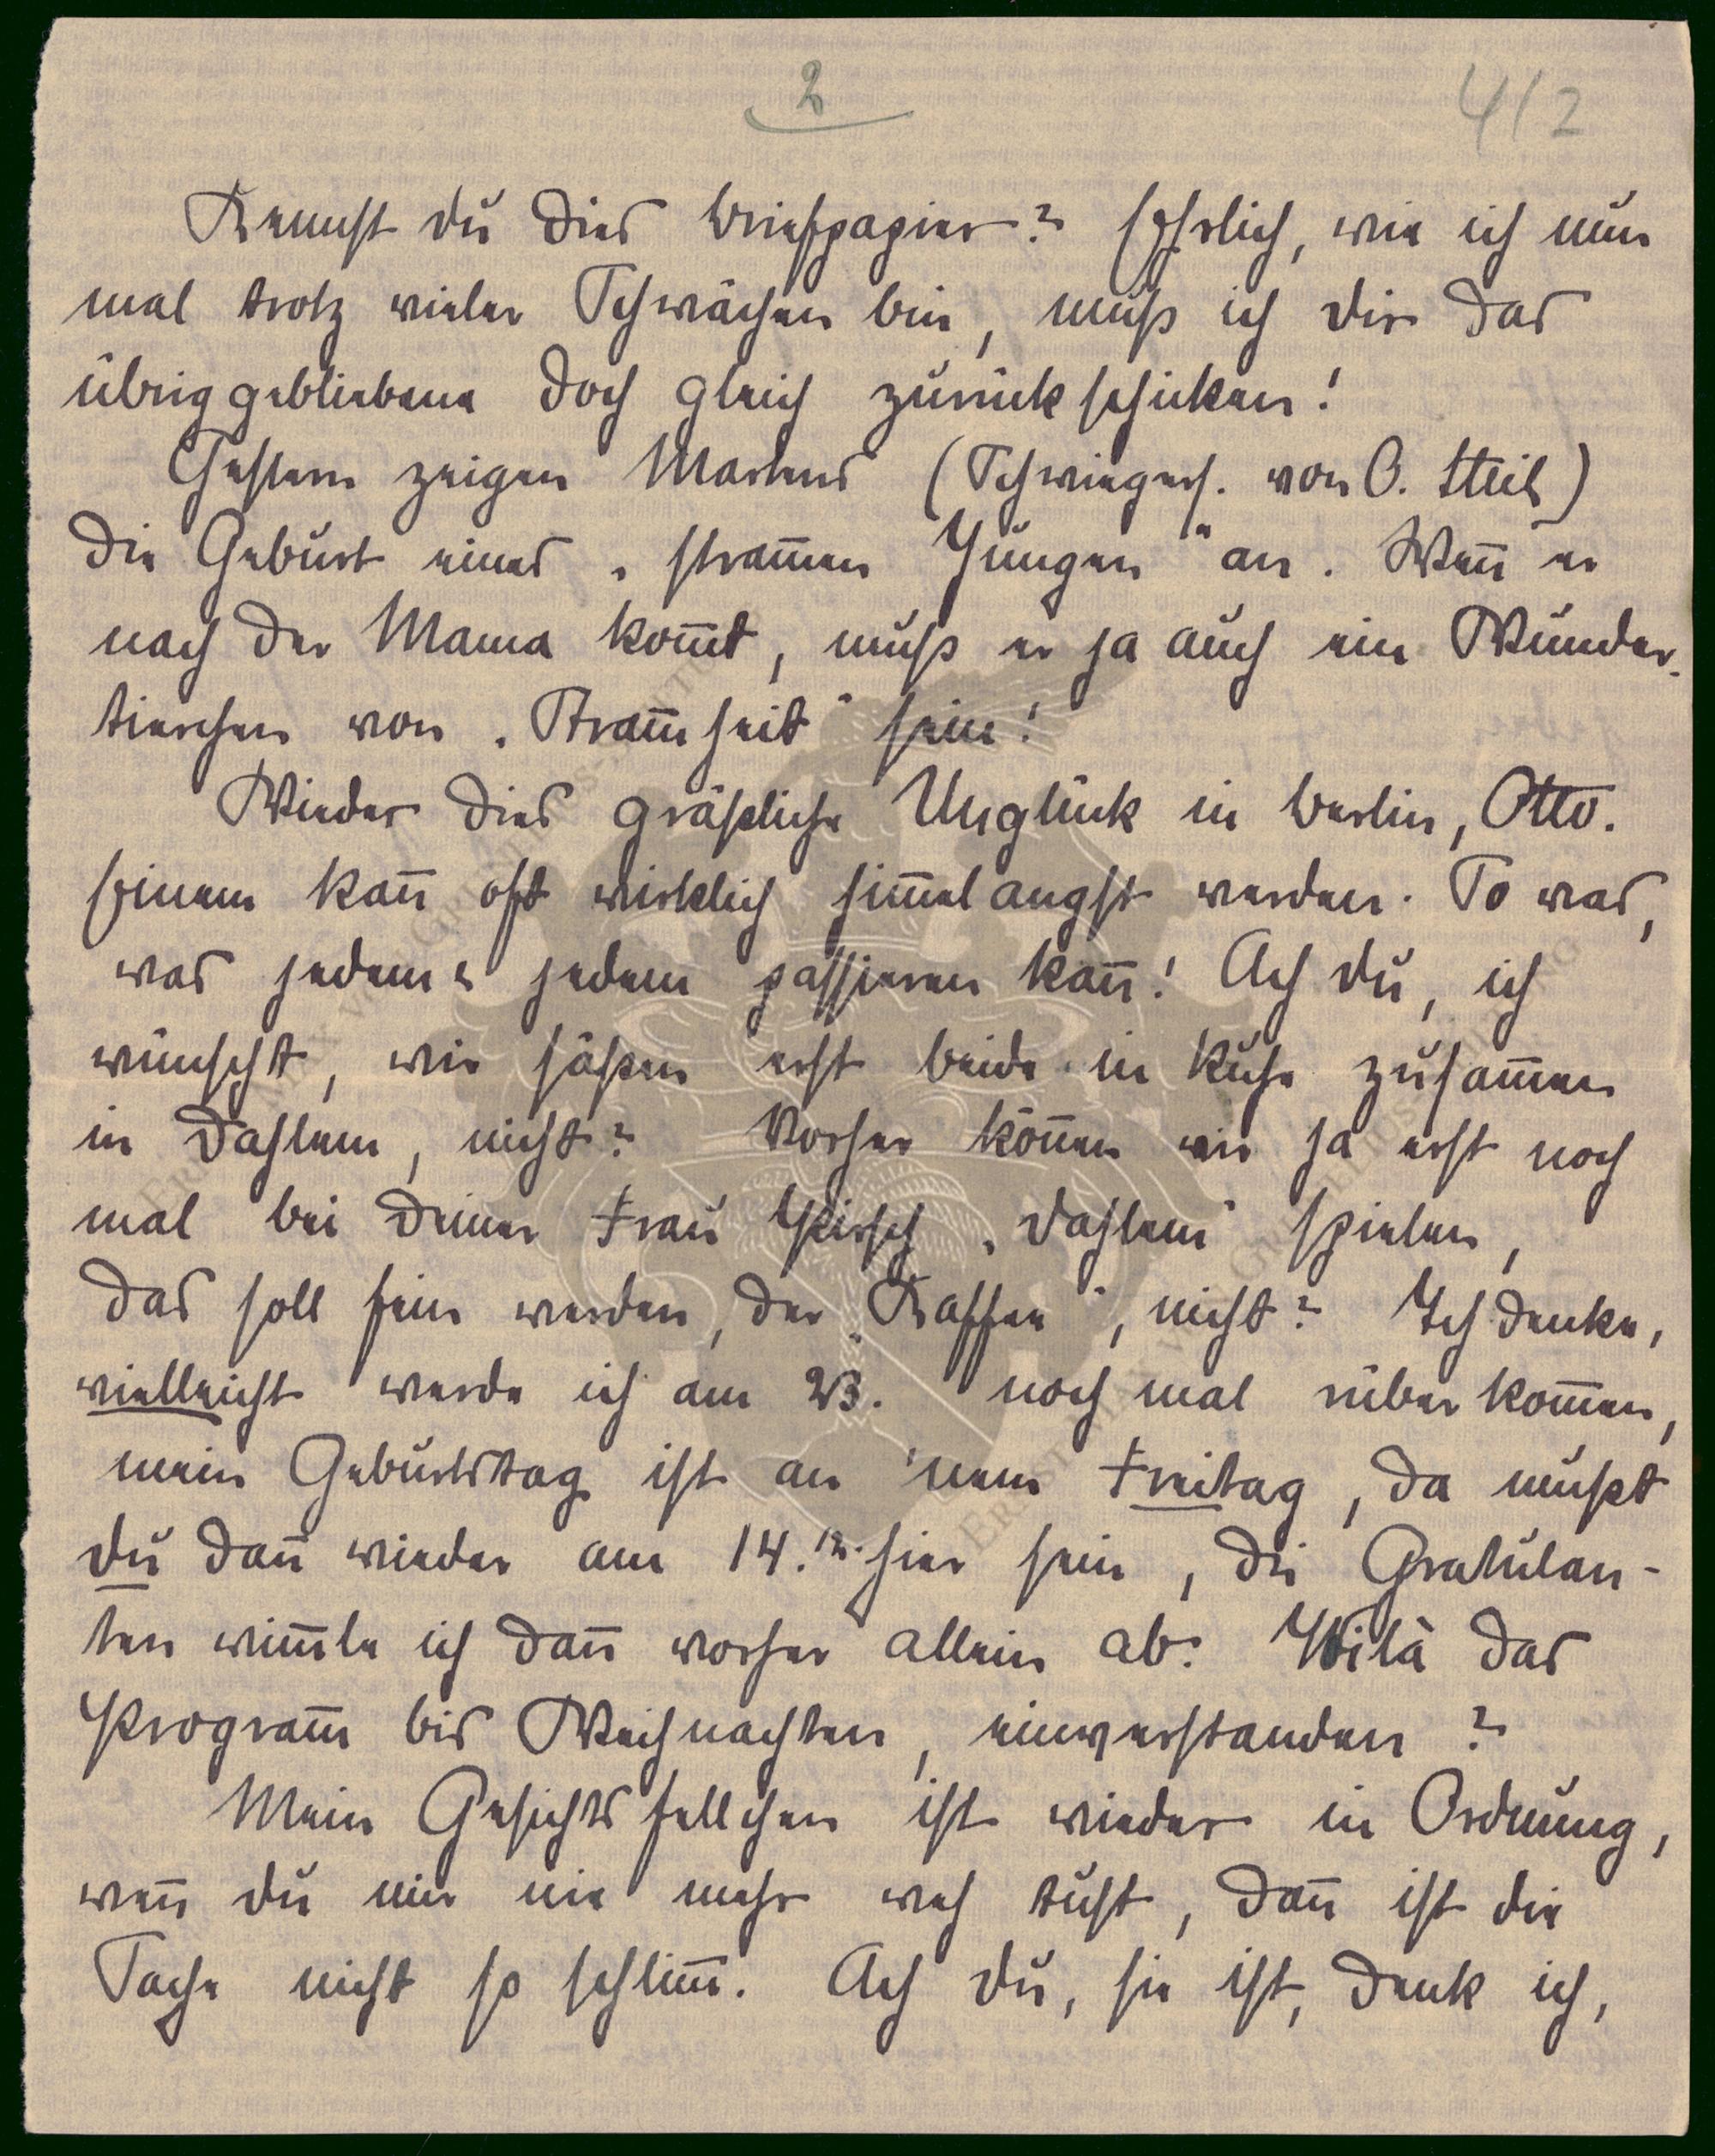 2
412
Kennst du dies Briefpapier? Ehrlich, wie ich nun
mal trotz vieler Schwächen bin, muß ich dir das
übriggebliebene doch gleich zurückschicken!
Gestern zeigen Martens (Schwiegers. von O. Steil)
die Geburt eines „stram̅en Jungen" an. Wen̅ er
nach der Mama kom̅t, muß er ja auch ein Wunder-
tierchen von „Stram̅heit" sein!
Wieder dies gräßliche Unglück in Berlin, Otto.
Einem kan̅ oft wirklich him̅elangst werden. So was,
was jedem & jedem passieren kan̅! Ach du, ich
wünscht, wir säßen erst beide in Ruhe zusam̅en
in Dahlem, nicht? Vorher kön̅en wir ja erst noch
mal bei deiner Frau Hirsch „Dahlem" spielen,
das soll fein werden, der „Kaffee", nicht? Ich denke,
vielleicht werde ich am 23. noch mal rüber kom̅en,
mein Geburtstag ist an 'nem Freitag, da mußt
du dan̅ wieder am 14.12. hier sein, die Gratulan-
ten wim̅le ich dan̅ vorher allein ab. Voilà das
Program̅ bis Weihnachten, einverstanden?
Mein Gesichtsfellchen ist wieder in Ordnung,
wen̅ du mir nie mehr weh tust, dan̅ ist die
Sache nicht so schlim̅. Ach du, sie ist, denk ich,